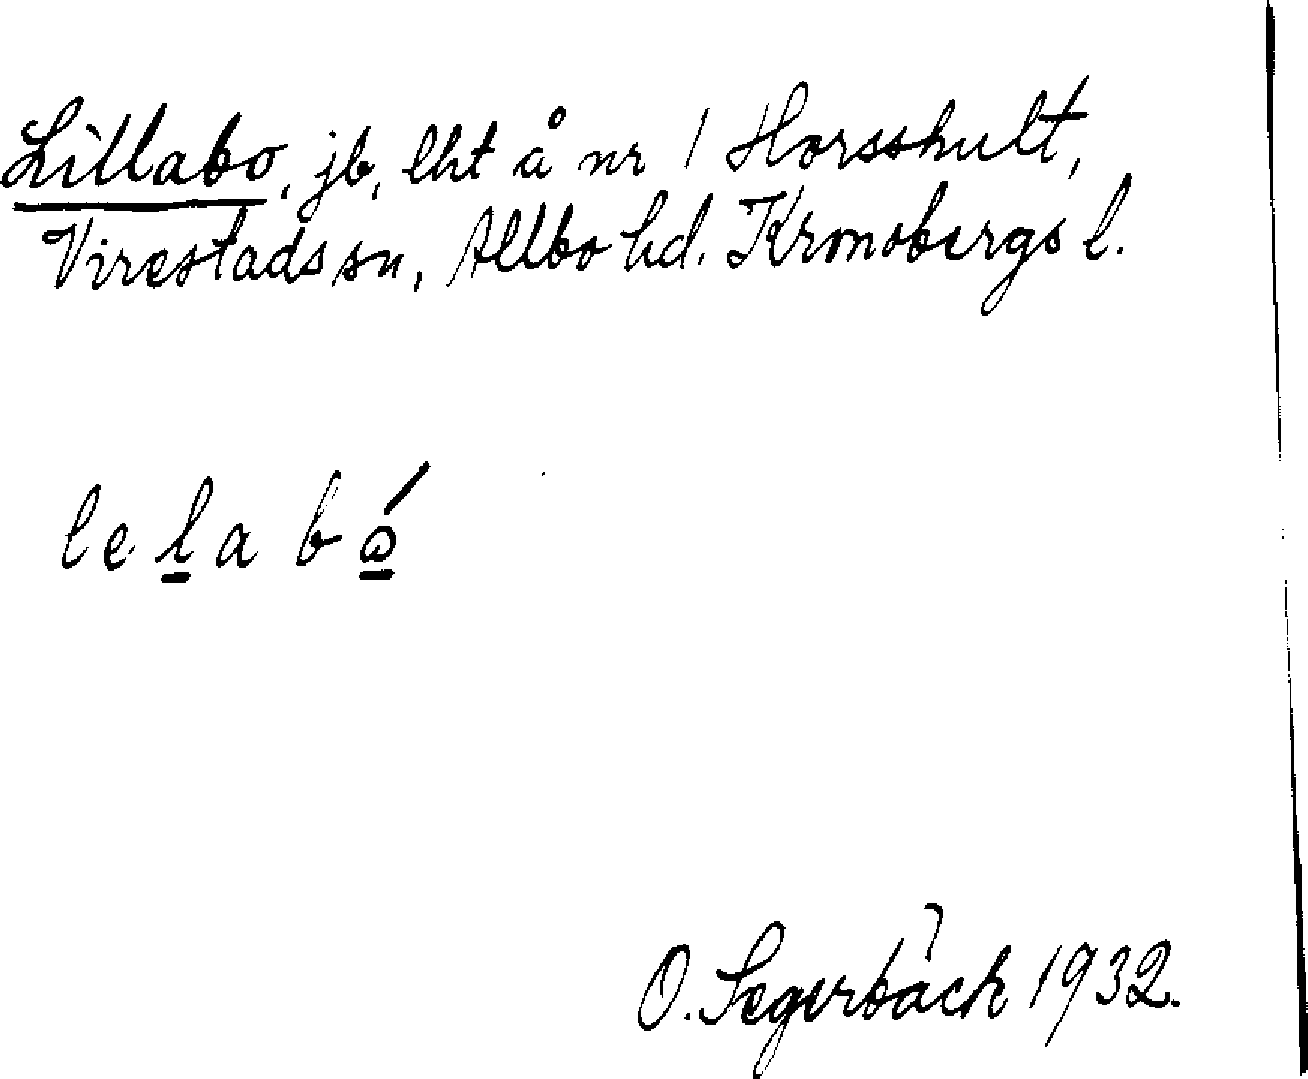 Lillabo, jb, lht å nr 1 Horsshult,
Virestads sn, Allbo hd. Kronobergs l.
le l̲a bó̲
O. Segerbäck 1932.